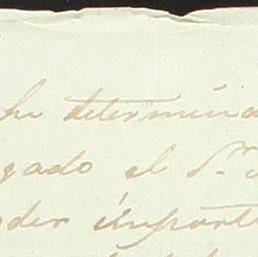 he determina
gado el Sr.
oder importa